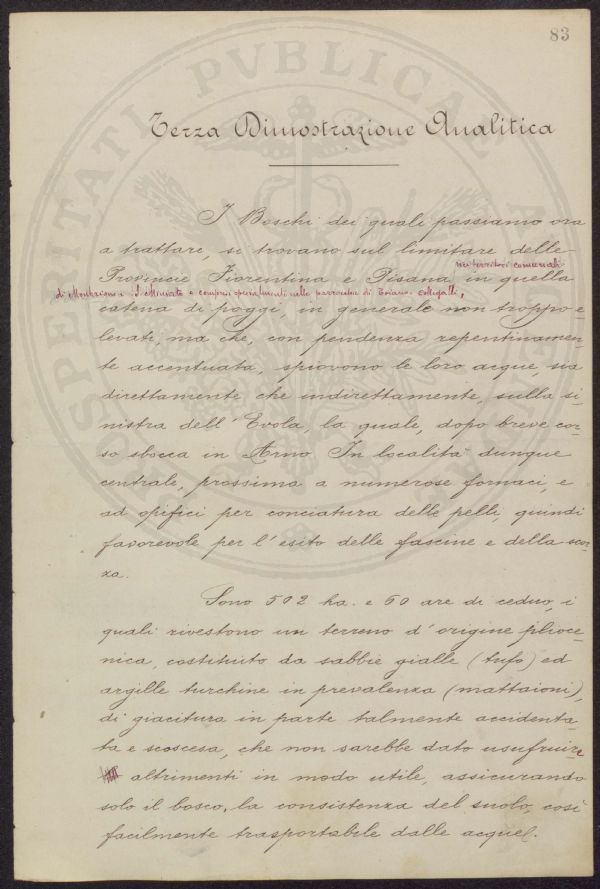 83
PROSPERITATI PVBLICAE AVGENDAE
Terza Dimostrazione Analitica
I Boschi dei quali passiamo ora
a trattare, si trovano sul limitare delle
nei territori comunali
Provincie Fiorentina e Pisana, in quella
di Montaione e S. Miniato e compresi nelle parrocchie di Toiano - Collegalli,
catena di poggi, in generale non troppo e-
levati, ma che, con pendenza repentinamen-
te accentuata, spiovono le loro acque, sia
direttamente che indirettamente, sulla si-
nistra dell'Evola, la quale, dopo breve cor-
so sbocca in Arno. In località dunque
centrale, prossima a numerose fornaci, e
ad opifici per conciatura delle pelli, quindi
favorevole per l'esito delle fascine e della scor-
za.
Sono 502 ha. e 60 are di ceduo, i
quali rivestono un terreno d'origine plioce-
nica, costituito da sabbie gialle (tufo) ed
argille turchine in prevalenza (mattaioni),
di giacitura in parte talmente accidenta-
ta e scoscesa, che non sarebbe dato usufruire
altrimenti in modo utile, assicurando
solo il bosco, la consistenza del suolo, così
facilmente trasportabile dalle acque.